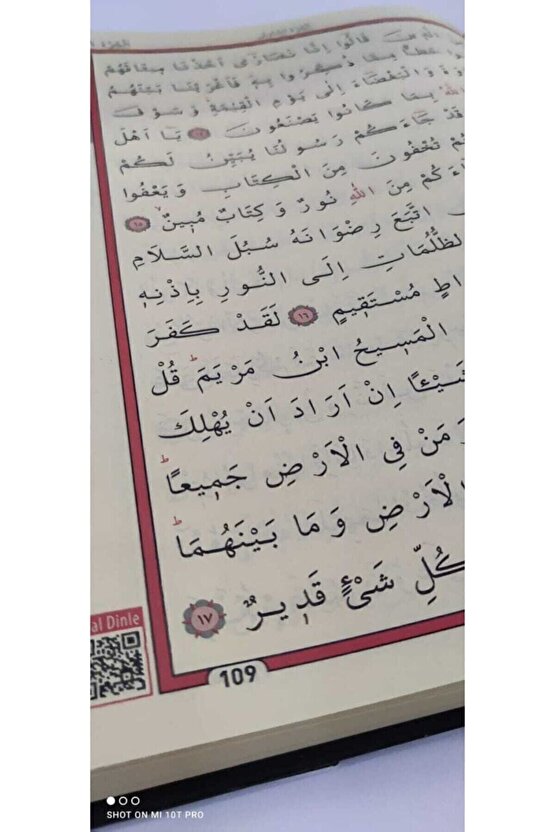 قَالُٓوا اِنَّا نَصَارٰٓى اَخَذْنَا مِيثَاقَهُمْ
ذُكِّرُوا بِهِ فَاَغْرَيْنَا بَيْنَهُمُ
وَالْبَغْضَٓاءَ اِلٰى يَوْمِ الْقِيٰمَةِ وَسَوْفَ
اللّٰهُ بِمَا كَانُوا يَصْنَعُونَ ١٤ يَٓا اَهْلَ
قَدْ جَٓاءَكُمْ رَسُولُنَا يُبَيِّنُ لَكُمْ
تُخْفُونَ مِنَ الْكِتَابِ وَيَعْفُوا
مِنَ اللّٰهِ نُورٌ وَكِتَابٌ مُبِينٌ ١٥
اتَّبَعَ رِضْوَانَهُ سُبُلَ السَّلَامِ
الظُّلُمَاتِ اِلَى النُّورِ بِاِذْنِهِ
مُسْتَقِيمٍ ١٦ لَقَدْ كَفَرَ
الْمَسِيحُ ابْنُ مَرْيَمَ ط قُلْ
شَيْـًٔا اِنْ اَرَادَ اَنْ يُهْلِكَ
مَنْ فِي الْاَرْضِ جَمِيعًا ط
الْاَرْضِ وَمَا بَيْنَهُمَا ط
كُلِّ شَيْءٍ قَدِيرٌ ١٧
al Dinle
109
SHOT ON MI 10T PRO